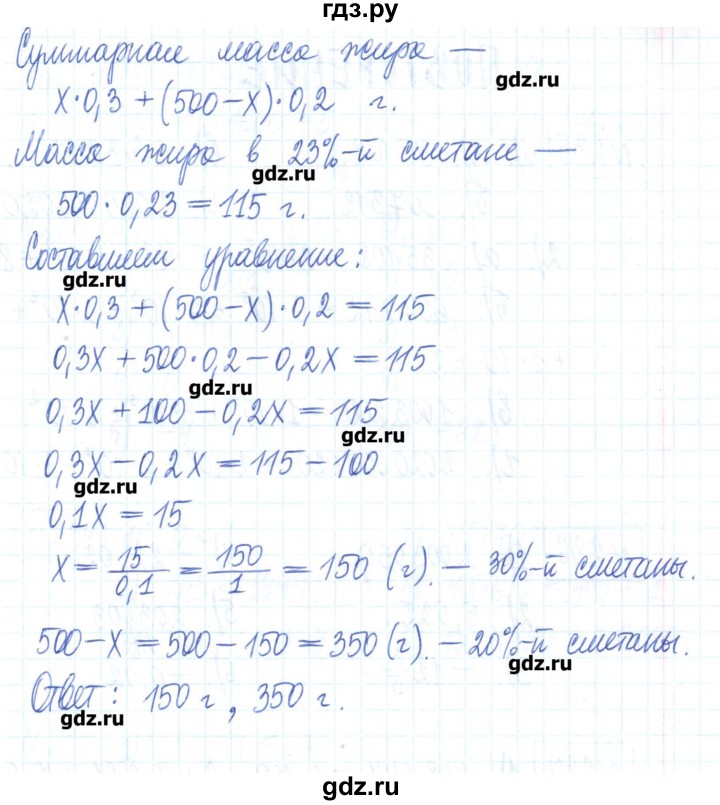 гдз.ру
Суммарная масса жира —
gdz.ru
x·0,3 + (500 – x)·0,2 г.
Масса жира в 23%-й сметане —
gdz.ru
500·0,23 = 115 г.
Составляем уравнение:
gdz.ru
x·0,3 + (500 – x)·0,2 = 115
0,3x + 500·0,2 – 0,2x = 115
gdz.ru
0,3x + 100 – 0,2x = 115
gdz.ru
0,3x – 0,2x = 115 – 100
gdz.ru
0,1x = 15
x = 15/0,1 = 150/1 = 150 (г). – 30%-й сметаны.
500 – x = 500 – 150 = 350 (г). – 20%-й сметаны.
gdz.ru
Ответ: 150 г, 350 г.
gdz.ru
gdz.ru